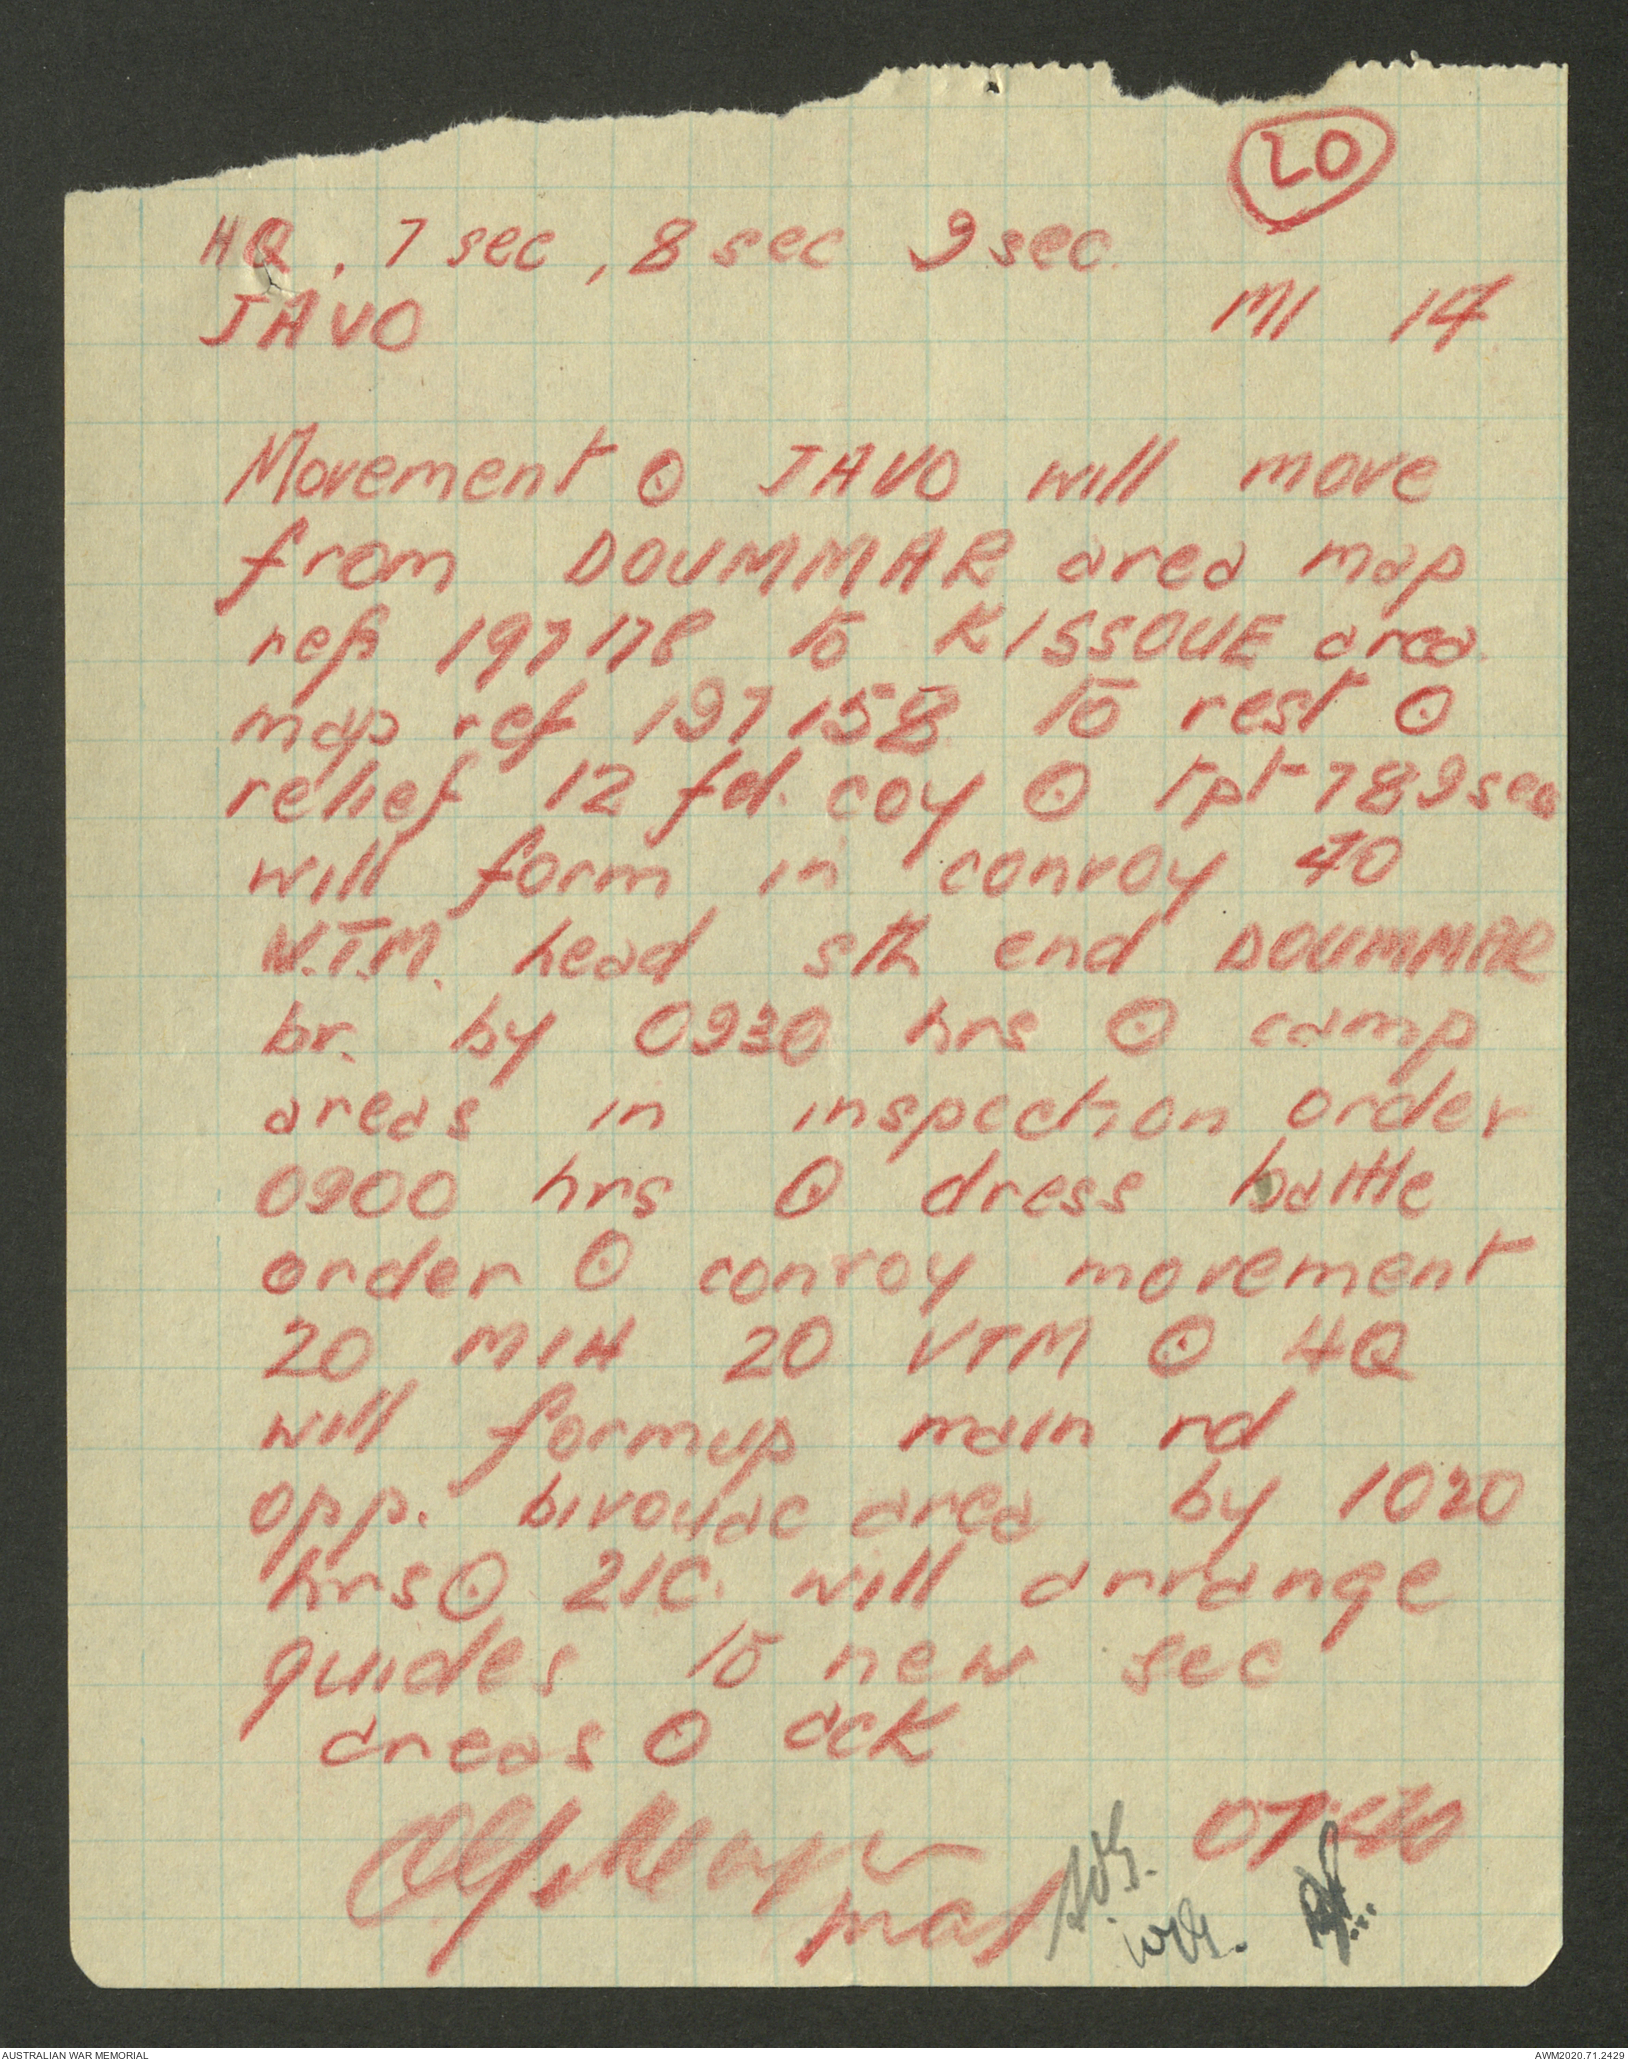 20
HQ, 7 sec, 8 sec 9 sec.
JAVO M1 14
Movement ⊙ JAVO will move
from DOUMMAR area map
ref 197178 to KISSOUE area
map ref 197158 to rest ⊙
relief 12 fd. coy ⊙ tpt 789 secs
will form in convoy 40
V.T.M. head sth end DOUMMAR
br. by 0930 hrs ⊙ camp
areas in inspection order
0900 hrs ⊙ dress battle
order ⊙ convoy movement
20 MIH 20 VTM ⊙ HQ
will formup main rd
opp. bivouac area by 1020
hrs ⊙ 2IC. will arrange
guides to new sec
areas ⊙ ack
maj
AUSTRALIAN WAR MEMORIAL AWM2020.71.2429